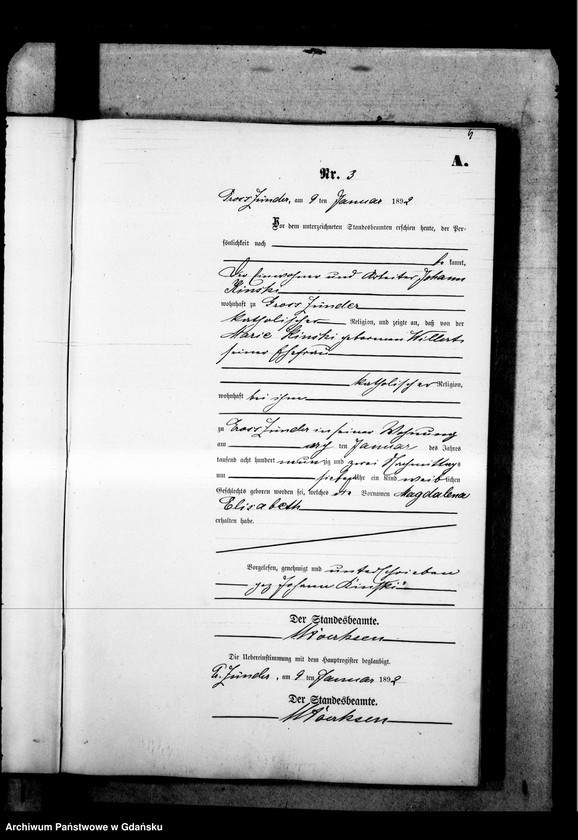 A.
Nr. 3
Gross Zünder, am 9 ten Januar 1892
Vor dem unterzeichneten Standesbeamten erschien heute, der Per-
sönlichkeit nach
be kannt,
Der Einwohner und Arbeiter Johann
Kinski
wohnhaft zu Gross Zünder
katholischer Religion, und zeigte an, daß von der
Marie Kinski geborenen Willert
seiner Ehefrau
katholischer Religion,
wohnhaft bei ihm
zu Gross Zünder in seiner Wohnung
am ten Januar des Jahres
tausend acht hundert neunzig und zwei Nachmittags
um sieben Uhr ein Kind weib lichen
Geschlechts geboren worden sei, welches die Vornamen Magdalena
Elisabeth
erhalten habe.
Vorgelesen, genehmigt und unterschrieben
gez Johann Kinski
Der Standesbeamte.
Die Uebereinstimmung mit dem Hauptregister beglaubigt.
G. Zünder, am 9 ten Januar 1892
Der Standesbeamte.
Archiwum Państwowe w Gdańsku